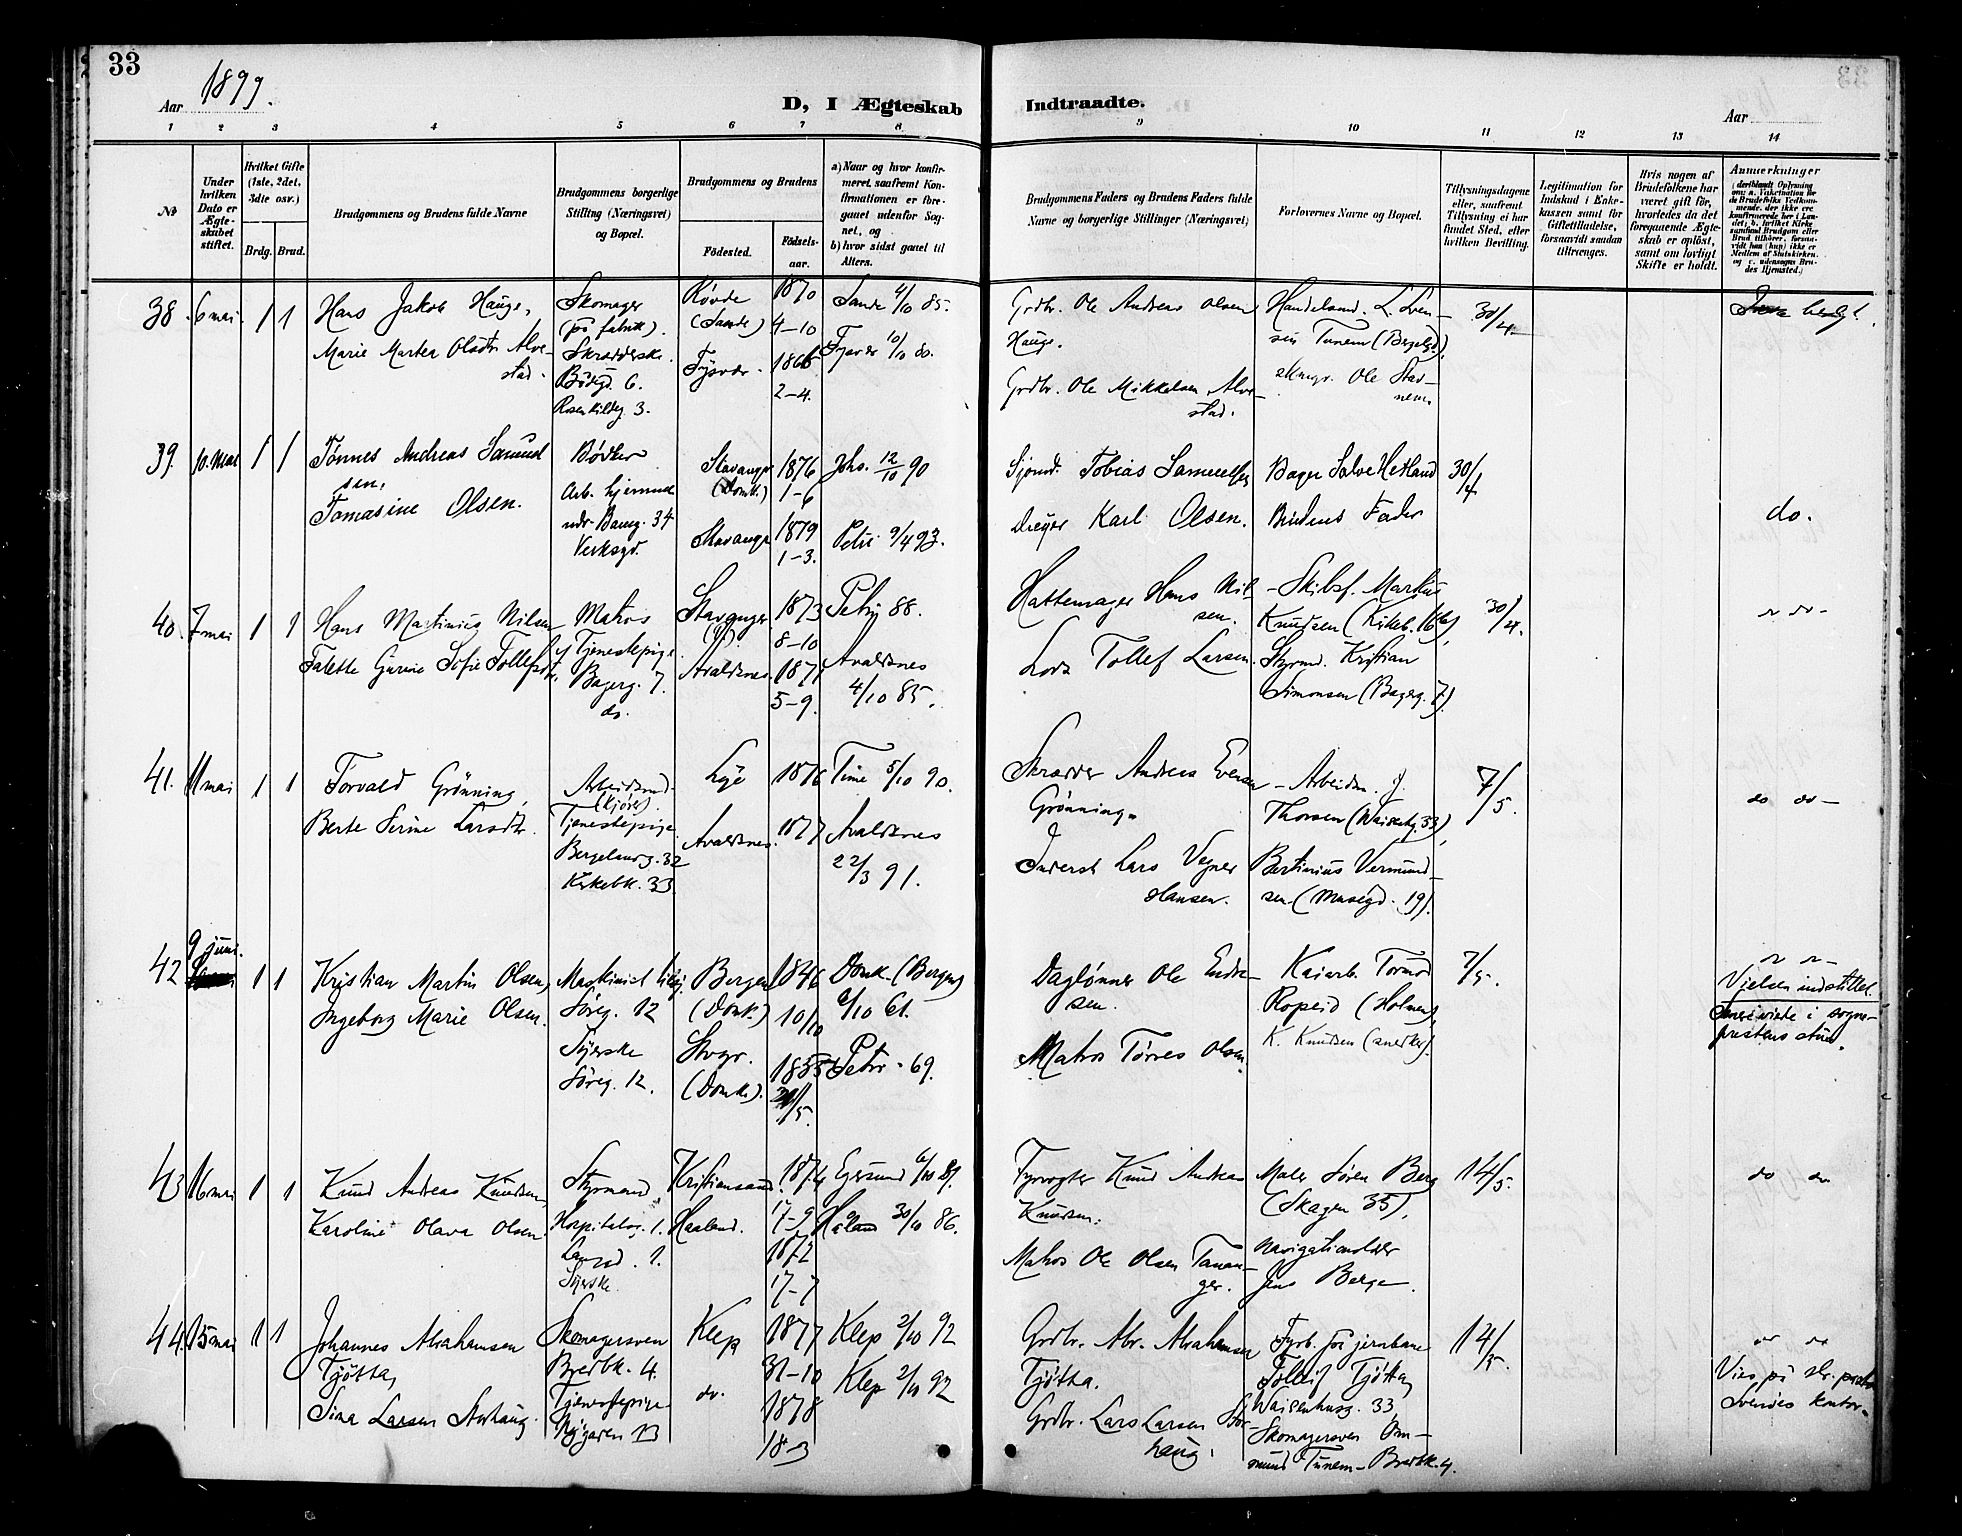 33
Aar 1899.
D, I Ægteskab Indtraadte.
Aar
1 2 3 4 5 6 7 8 9 10 11 12 13 14
No
Under hvilken Dato er Ægteskabet stiftet.
Hvilket Gifte (1ste, 2det, 3die osv.)
Brdg. Brud.
Brudgommens og Brudens fulde Navne
Brudgommens borgerlige Stilling (Næringsvei) og Bopæl.
Brudgommens og Brudens
Födested. Födselsaar.
a) Naar og hvor konfirmeret, saafremt Konfirmationen er foregaaet udenfor Sognet, og
b) hvor sidst gaaet til Alters.
Brudgommens Faders og Brudens Faders fulde Navne og borgerlige Stillinger (Næringsvei)
Forlovernes Navne og Bopæl.
Tillysningsdagene eller, saafremt Tillysning ei har fundet Sted, efter hvilken Bevilling.
Legitimation for Indskud i Enkekassen samt for Giftetilladelse, forsaavidt saadan tiltrænges.
Hvis nogen af Brudefolkene har været gift før, hvorledes da det foregaaende Ægteskab er oplöst, samt om lovligt Skifte er holdt.
Anmærkninger
38. 6 mai. 1 1
Hans Jakob Hauge,
Marie Martea Olsdtr Alvestad.
Skomager
(på fabrik).
Skrædderske.
Bødegd. 6.
Rosenkildeg. 3.
Røvde
(Sande)
Tysvær.
1870
4-10
1866
2-4.
Sande 4/10 85.
Tysvær 10/10 do.
Grdbr. Ole Andreas Olsen
Hauge.
Grdbr. Ole Mikkelsen Alvestad.
Handelsmd. L. Svensen Tunem (Bergelgd.),
skmgr. Ole Stavnem.
30/4
39. 10. mai 1 1
Tønnes Andreas Samuelsen,
Tomasine Olsen.
Bødker
Arb. hjemme
Verksgd.
Stavanger
(Domk.)
Stavanger
1876
1-6
1879
1-3.
Johs. 12/10 90
Petri 9/4 93.
Sjømd. Tobias Samuelsen
Dreyer Karl Olsen.
Bager Salve Hetland
Brudens Fader
30/4
do.
40. 7 mai 1 1
Hans Martinius Nilsen
Talette Gurine Sofie Tollefsdtr,
Matros
Tjenestepige
Bagerg. 7.
do.
Stavanger
Avaldsnes.
1873
8-10
1871
5-9.
Petri 88.
Avaldsnes
4/10 85.
Hattemager Hans Nilsen.
Lods Tollef Larsen.
Skibsf. Markus
Knudsen (Kirkeb. 16b),
Styrmd. Kristian
Simonsen (Bagerg. 7).
30/4.
41. 11 mai 1 1
Torvald Grønning,
Berte Serine Larsdtr.
Arbeidsmd.
(kjører).
Tjenestepige
Bergelandsg. 32
Kirkebk. 33
Lye
Avaldsnes.
1876
1877
Time 5/10 90.
Avaldsnes
22/3 91.
Skrædder Andreas Evensen
Grønning.
Inderst Lars Vegner
Hansen.
Arbeidsm. J.
Thorsen (Waisenhg. 33),
Bertinius Vermundsen (Musegd. 19).
7/5.
do do
42 9 juni. 1 1
Kristian Martin Olsen,
Ingeborg Marie Olsen.
Maskinist
Søreg. 12
Syerske
Søreg. 12.
Bergen
(Domk.)
Stvgr.
(Domk.).
1846
10/10
1855
21/5.
Domk. (Bergen)
6/10 61.
Petri 69.
Daglønner Ole Endresen.
Matros Tørres Olsen
Kaiarb. Tormod
Ropeid (Holmen),
K. Knudsen (snedker).
7/5.
Vielsen indstillet.
viede i sogneprestens stue.
43 16 mai 1 1
Knud Andreas Knudsen,
Karoline Olava Olsen
Styrmand
Hospitalsg. 1.
1.
Syerske.
Kristianssand.
Haaland.
1874
17-9
1872
17-7
Egersund 6/10 89.
Håland 30/10 86.
Fyrvogter Knud Andreas
Knudsen.
Matros Ole Olsen Tananger.
Maler Søren Berg
(Skagen 35),
Navigationslærer
Jens Berge.
14/5.
do do
44. 15 mai 1 1
Johannes Abrahamsen
Tjøtta,
Sina Larsen Storhaug.
Skomagersven
Bredbk. 4.
Tjenestepige
Nygaden 13
Klep
do.
1877
31-10
1878
18-3
Klep 2/10 92
Klep 2/10 92
Grdbr. Abr. Abrahamsen
Tjøtta.
Grdbr. Lars Larsen Storhaug.
Fyrb. på jernbane
Tollef Tjøtta,
Waisenhusg. 33,
Skomagersven Ommund Tunem Bredbk. 4.
14/5.
Vies på kontor.